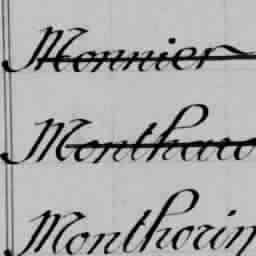 Monnier
Monthau
Monthorin